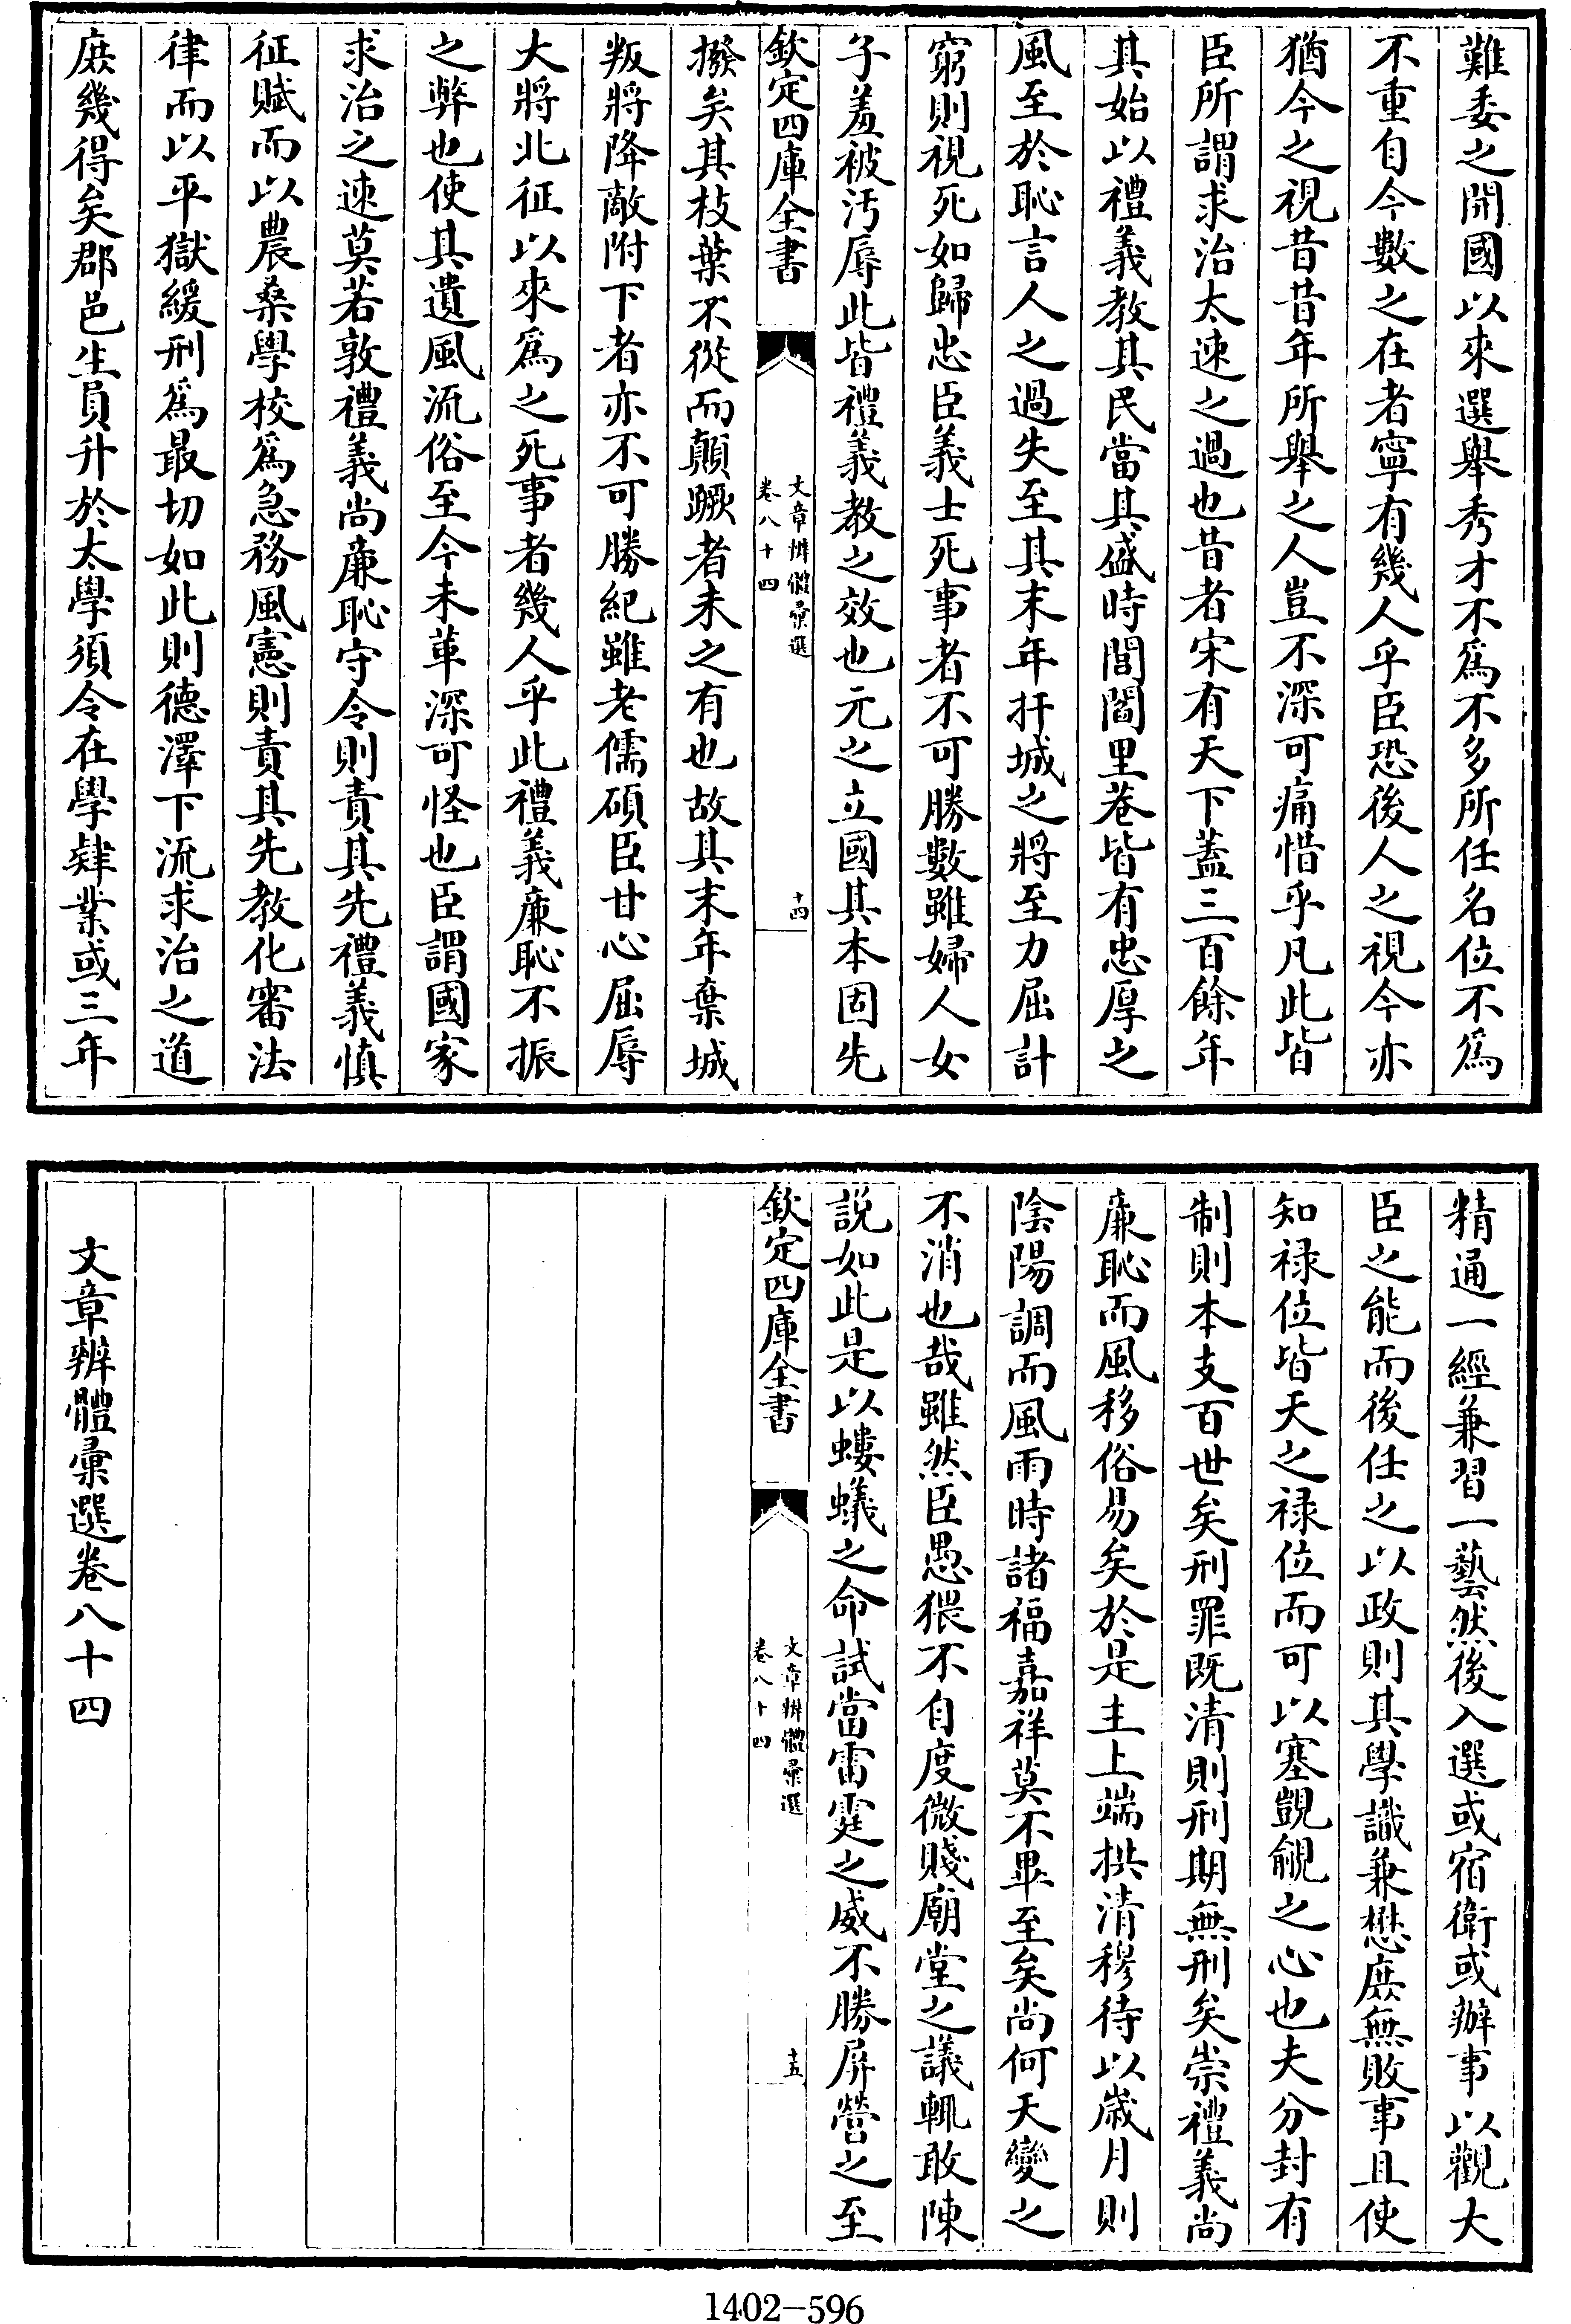 難委之開國以來選舉秀才不爲不多所任名位不爲
不重自今數之在者寧有幾人乎臣恐後人之視今亦
猶今之視昔昔年所舉之人豈不深可痛惜乎凡此皆
臣所謂求治太速之過也昔者宋有天下蓋三百餘年
其始以禮義教其民當其盛時閭閻里巷皆有忠厚之
風至於恥言人之過失至其末年扞城之將至力屈計
窮則視死如歸忠臣義士死事者不可勝數雖婦人女
子羞被汚辱此皆禮義教之效也元之立國其本固先
欽定四庫全書
文章辨體彙選
卷八十四
十四
撥矣其枝葉不從而顛蹶者未之有也故其末年棄城
叛將降敵附下者亦不可勝紀雖老儒碩臣甘心屈辱
大將北征以來爲之死事者幾人乎此禮義廉恥不振
之弊也使其遺風流俗至今未革深可怪也臣謂國家
求治之速莫若敦禮義尚廉恥守令則責其先禮義慎
征賦而以農桑學校爲急務風憲則責其先教化審法
律而以平獄緩刑爲最切如此則德澤下流求治之道
庶幾得矣郡邑生員升於太學須令在學肄業或三年
精通一經兼習一藝然後入選或宿衛或辦事以觀大
臣之能而後任之以政則其學識兼懋庶無敗事且使
知祿位皆天之祿位而可以塞覬覦之心也夫分封有
制則本支百世矣刑罪既清則刑期無刑矣崇禮義尚
廉恥而風移俗易矣於是主上端拱清穆待以歲月則
陰陽調而風雨時諸福嘉祥莫不畢至矣尚何天變之
不消也哉雖然臣愚猥不自度微賤廟堂之議輒敢陳
說如此是以螻蟻之命試當雷霆之威不勝屏營之至
欽定四庫全書
文章辨體彙選
卷八十四
十五
文章辨體彙選卷八十四
1402-596